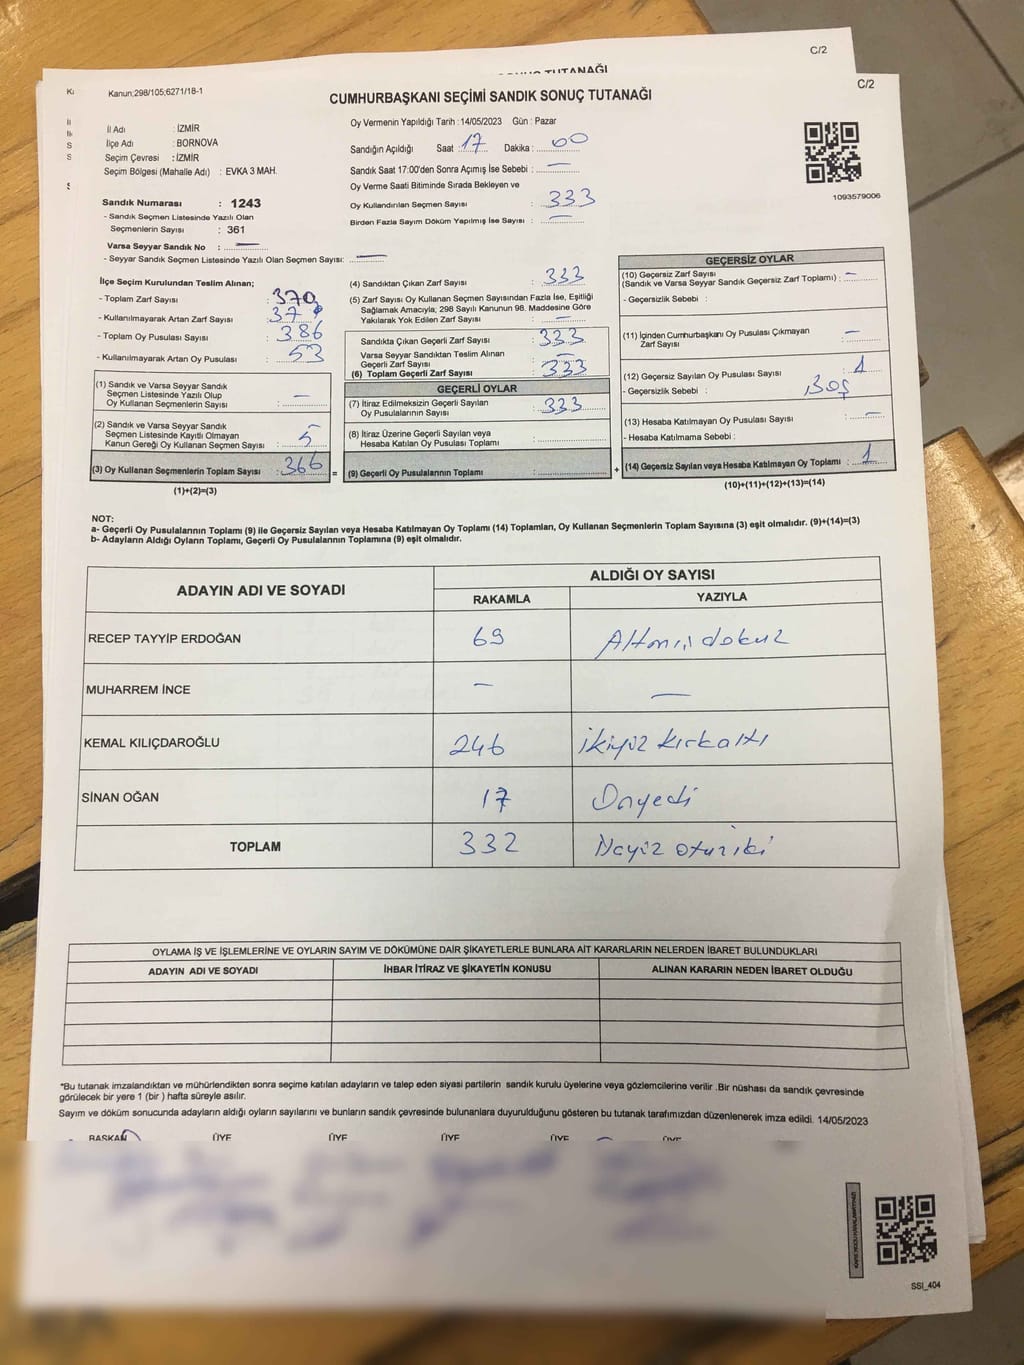 C/2
SONUÇ TUTANAĞI
C/2
Kanun;298/105;6271/18-1
CUMHURBAŞKANI SEÇİMİ SANDIK SONUÇ TUTANAĞI
İl Adı : İZMİR
İlçe Adı : BORNOVA
Seçim Çevresi : İZMİR
Seçim Bölgesi (Mahalle Adı) : EVKA 3 MAH.
Oy Vermenin Yapıldığı Tarih : 14/05/2023 Gün : Pazar
Sandığın Açıldığı Saat : 17 Dakika : 00
Sandık Saat 17:00'den Sonra Açımış İse Sebebi : —
Oy Verme Saati Bitiminde Sırada Bekleyen ve
Oy Kullandırılan Seçmen Sayısı : 333
Birden Fazla Sayım Döküm Yapılmış İse Sayısı : —
1093579006
Sandık Numarası : 1243
- Sandık Seçmen Listesinde Yazılı Olan
Seçmenlerin Sayısı : 361
Varsa Seyyar Sandık No : —
- Seyyar Sandık Seçmen Listesinde Yazılı Olan Seçmen Sayısı: —
İlçe Seçim Kurulundan Teslim Alınan;
- Toplam Zarf Sayısı : 370
- Kullanılmayarak Artan Zarf Sayısı :
- Toplam Oy Pusulası Sayısı : 386
- Kullanılmayarak Artan Oy Pusulası : 53
(1) Sandık ve Varsa Seyyar Sandık
Seçmen Listesinde Yazılı Olup
Oy Kullanan Seçmenlerin Sayısı : —
(2) Sandık ve Varsa Seyyar Sandık
Seçmen Listesinde Kayıtlı Olmayan
Kanun Gereği Oy Kullanan Seçmen Sayısı : 5
(3) Oy Kullanan Seçmenlerin Toplam Sayısı : 366 =
(1)+(2)=(3)
(4) Sandıktan Çıkan Zarf Sayısı : 333
(5) Zarf Sayısı Oy Kullanan Seçmen Sayısından Fazla İse, Eşitliği
Sağlamak Amacıyla; 298 Sayılı Kanunun 98. Maddesine Göre
Yakılarak Yok Edilen Zarf Sayısı : —
Sandıkta Çıkan Geçerli Zarf Sayısı : 333
Varsa Seyyar Sandıktan Teslim Alınan
Geçerli Zarf Sayısı : —
(6) Toplam Geçerli Zarf Sayısı : 333
GEÇERLİ OYLAR
(7) İtiraz Edilmeksizin Geçerli Sayılan
Oy Pusulalarının Sayısı : 333
(8) İtiraz Üzerine Geçerli Sayılan veya
Hesaba Katılan Oy Pusulası Toplamı :
(9) Geçerli Oy Pusulalarının Toplamı : +
GEÇERSİZ OYLAR
(10) Geçersiz Zarf Sayısı : —
(Sandık ve Varsa Seyyar Sandık Geçersiz Zarf Toplamı)
- Geçersizlik Sebebi :
(11) İçinden Cumhurbaşkanı Oy Pusulası Çıkmayan
Zarf Sayısı : —
(12) Geçersiz Sayılan Oy Pusulası Sayısı : 1
- Geçersizlik Sebebi : Boş
(13) Hesaba Katılmayan Oy Pusulası Sayısı : —
- Hesaba Katılmama Sebebi :
(14) Geçersiz Sayılan veya Hesaba Katılmayan Oy Toplamı : 1
(10)+(11)+(12)+(13)=(14)
NOT:
a- Geçerli Oy Pusulalarının Toplamı (9) ile Geçersiz Sayılan veya Hesaba Katılmayan Oy Toplamı (14) Toplamları, Oy Kullanan Seçmenlerin Toplam Sayısına (3) eşit olmalıdır. (9)+(14)=(3)
b- Adayların Aldığı Oyların Toplamı, Geçerli Oy Pusulalarının Toplamına (9) eşit olmalıdır.
ADAYIN ADI VE SOYADI ALDIĞI OY SAYISI
RAKAMLA YAZIYLA
RECEP TAYYİP ERDOĞAN 69 Altmışdokuz
MUHARREM İNCE — —
KEMAL KILIÇDAROĞLU 246 ikiyüz kırkaltı
SİNAN OĞAN 17 Onyedi
TOPLAM 332 otuziki
OYLAMA İŞ VE İŞLEMLERİNE VE OYLARIN SAYIM VE DÖKÜMÜNE DAİR ŞİKAYETLERLE BUNLARA AİT KARARLARIN NELERDEN İBARET BULUNDUKLARI
ADAYIN ADI VE SOYADI İHBAR İTİRAZ VE ŞİKAYETİN KONUSU ALINAN KARARIN NEDEN İBARET OLDUĞU
*Bu tutanak imzalandıktan ve mühürlendikten sonra seçime katılan adayların ve talep eden siyasi partilerin sandık kurulu üyelerine veya gözlemcilerine verilir .Bir nüshası da sandık çevresinde
görülecek bir yere 1 (bir ) hafta süreyle asılır.
Sayım ve döküm sonucunda adayların aldığı oyların sayılarını ve bunların sandık çevresinde bulunanlara duyurulduğunu gösteren bu tutanak tarafımızdan düzenlenerek imza edildi. 14/05/2023
BAŞKAN ÜYE ÜYE ÜYE ÜYE ÜYE
SSI_404